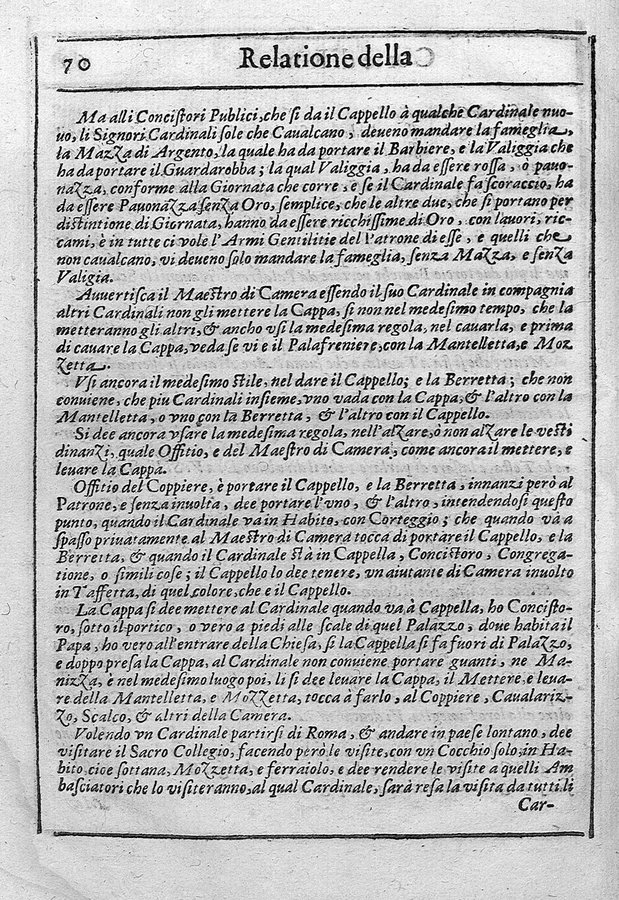 70
Relatione della
Ma alli Concistori Publici, che si da il Cappello à qualche Cardinale nuo-
uo, li Signori Cardinali sole che Caualcano, deueno mandare la fameglia,
la Mazza di Argento, la quale ha da portare il Barbiere, e la Valiggia che
ha da portare il Guardarobba; la qual Valiggia, ha da essere rossa, ò pauo-
nazza, conforme alla Giornata che corre, e se il Cardinale fa scoraccio, ha
da essere Pauonazza senza Oro, semplice, che le altre due, che si portano per
distintione di Giornata, hanno da essere ricchissime di Oro, con lauori, ric-
cami, è in tutte ci vole l'Armi Gentilitie del Patrone di esse, e quelli che
non caualcano, vi deueno solo mandare la fameglia, senza Mazza, e senza
Valigia.
Auuertisca il Maestro di Camera essendo il suo Cardinale in compagnia
altri Cardinali non gli mettere la Cappa, si non nel medesimo tempo, che la
metteranno gli altri, & ancho vsi la medesima regola, nel cauarla, e prima
di cauare la Cappa, veda se vi e il Palafreniere, con la Mantelletta, e Moz
zetta.
Vsi ancora il medesimo stile, nel dare il Cappello; e la Berretta; che non
conuiene, che piu Cardinali insieme, vno vada con la Cappa, & l'altro con la
Mantelletta, o vno con la Berretta, & l'altro con il Cappello.
Si dee ancora vsare la medesima regola, nell'alzare, ò non alzare le vesti
dinanzi, quale Offitio, e del Maestro di Camera, come ancora il mettere, e
leuare la Cappa.
Offitio del Coppiere, è portare il Cappello, e la Berretta, innanzi però al
Patrone, e senza inuolta, dee portare l'vno, & l'altro, intendendosi questo
punto, quando il Cardinale va in Habito, con Corteggio; che quando và a
spasso priuatamente al Maestro di Camera tocca di portare il Cappello, e la
Berretta, & quando il Cardinale stà in Cappella, Concistoro, Congrega-
tione, o simili cose; il Cappello lo dee tenere, vn aiutante di Camera inuolto
in Taffetta, di quel colore, che e il Cappello.
La Cappa si dee mettere al Cardinale quando va à Cappella, ho Concisto-
ro, sotto il portico, o vero a piedi alle scale di quel Palazzo, doue habita il
Papa, ho vero all'entrare della Chiesa, si la Cappella si fa fuori di Palazzo,
e doppo presa la Cappa, al Cardinale non conuiene portare guanti, ne Ma-
nizza, è nel medesimo luogo poi, li si dee leuare la Cappa, il Mettere, e leua-
re della Mantelletta, e Mozzetta, tocca à farlo, al Coppiere, Caualariz-
zo, Scalco, & altri della Camera.
Volendo vn Cardinale partirsi di Roma, & andare in paese lontano, dee
visitare il Sacro Collegio, facendo però le visite, con vn Cocchio solo, in Ha-
bito cioe sottana, Mozzetta, e ferraiolo, e dee rendere le visite a quelli Am
basciatori che lo visiteranno, al qual Cardinale, sarà resa la visita da tutti li
Car-